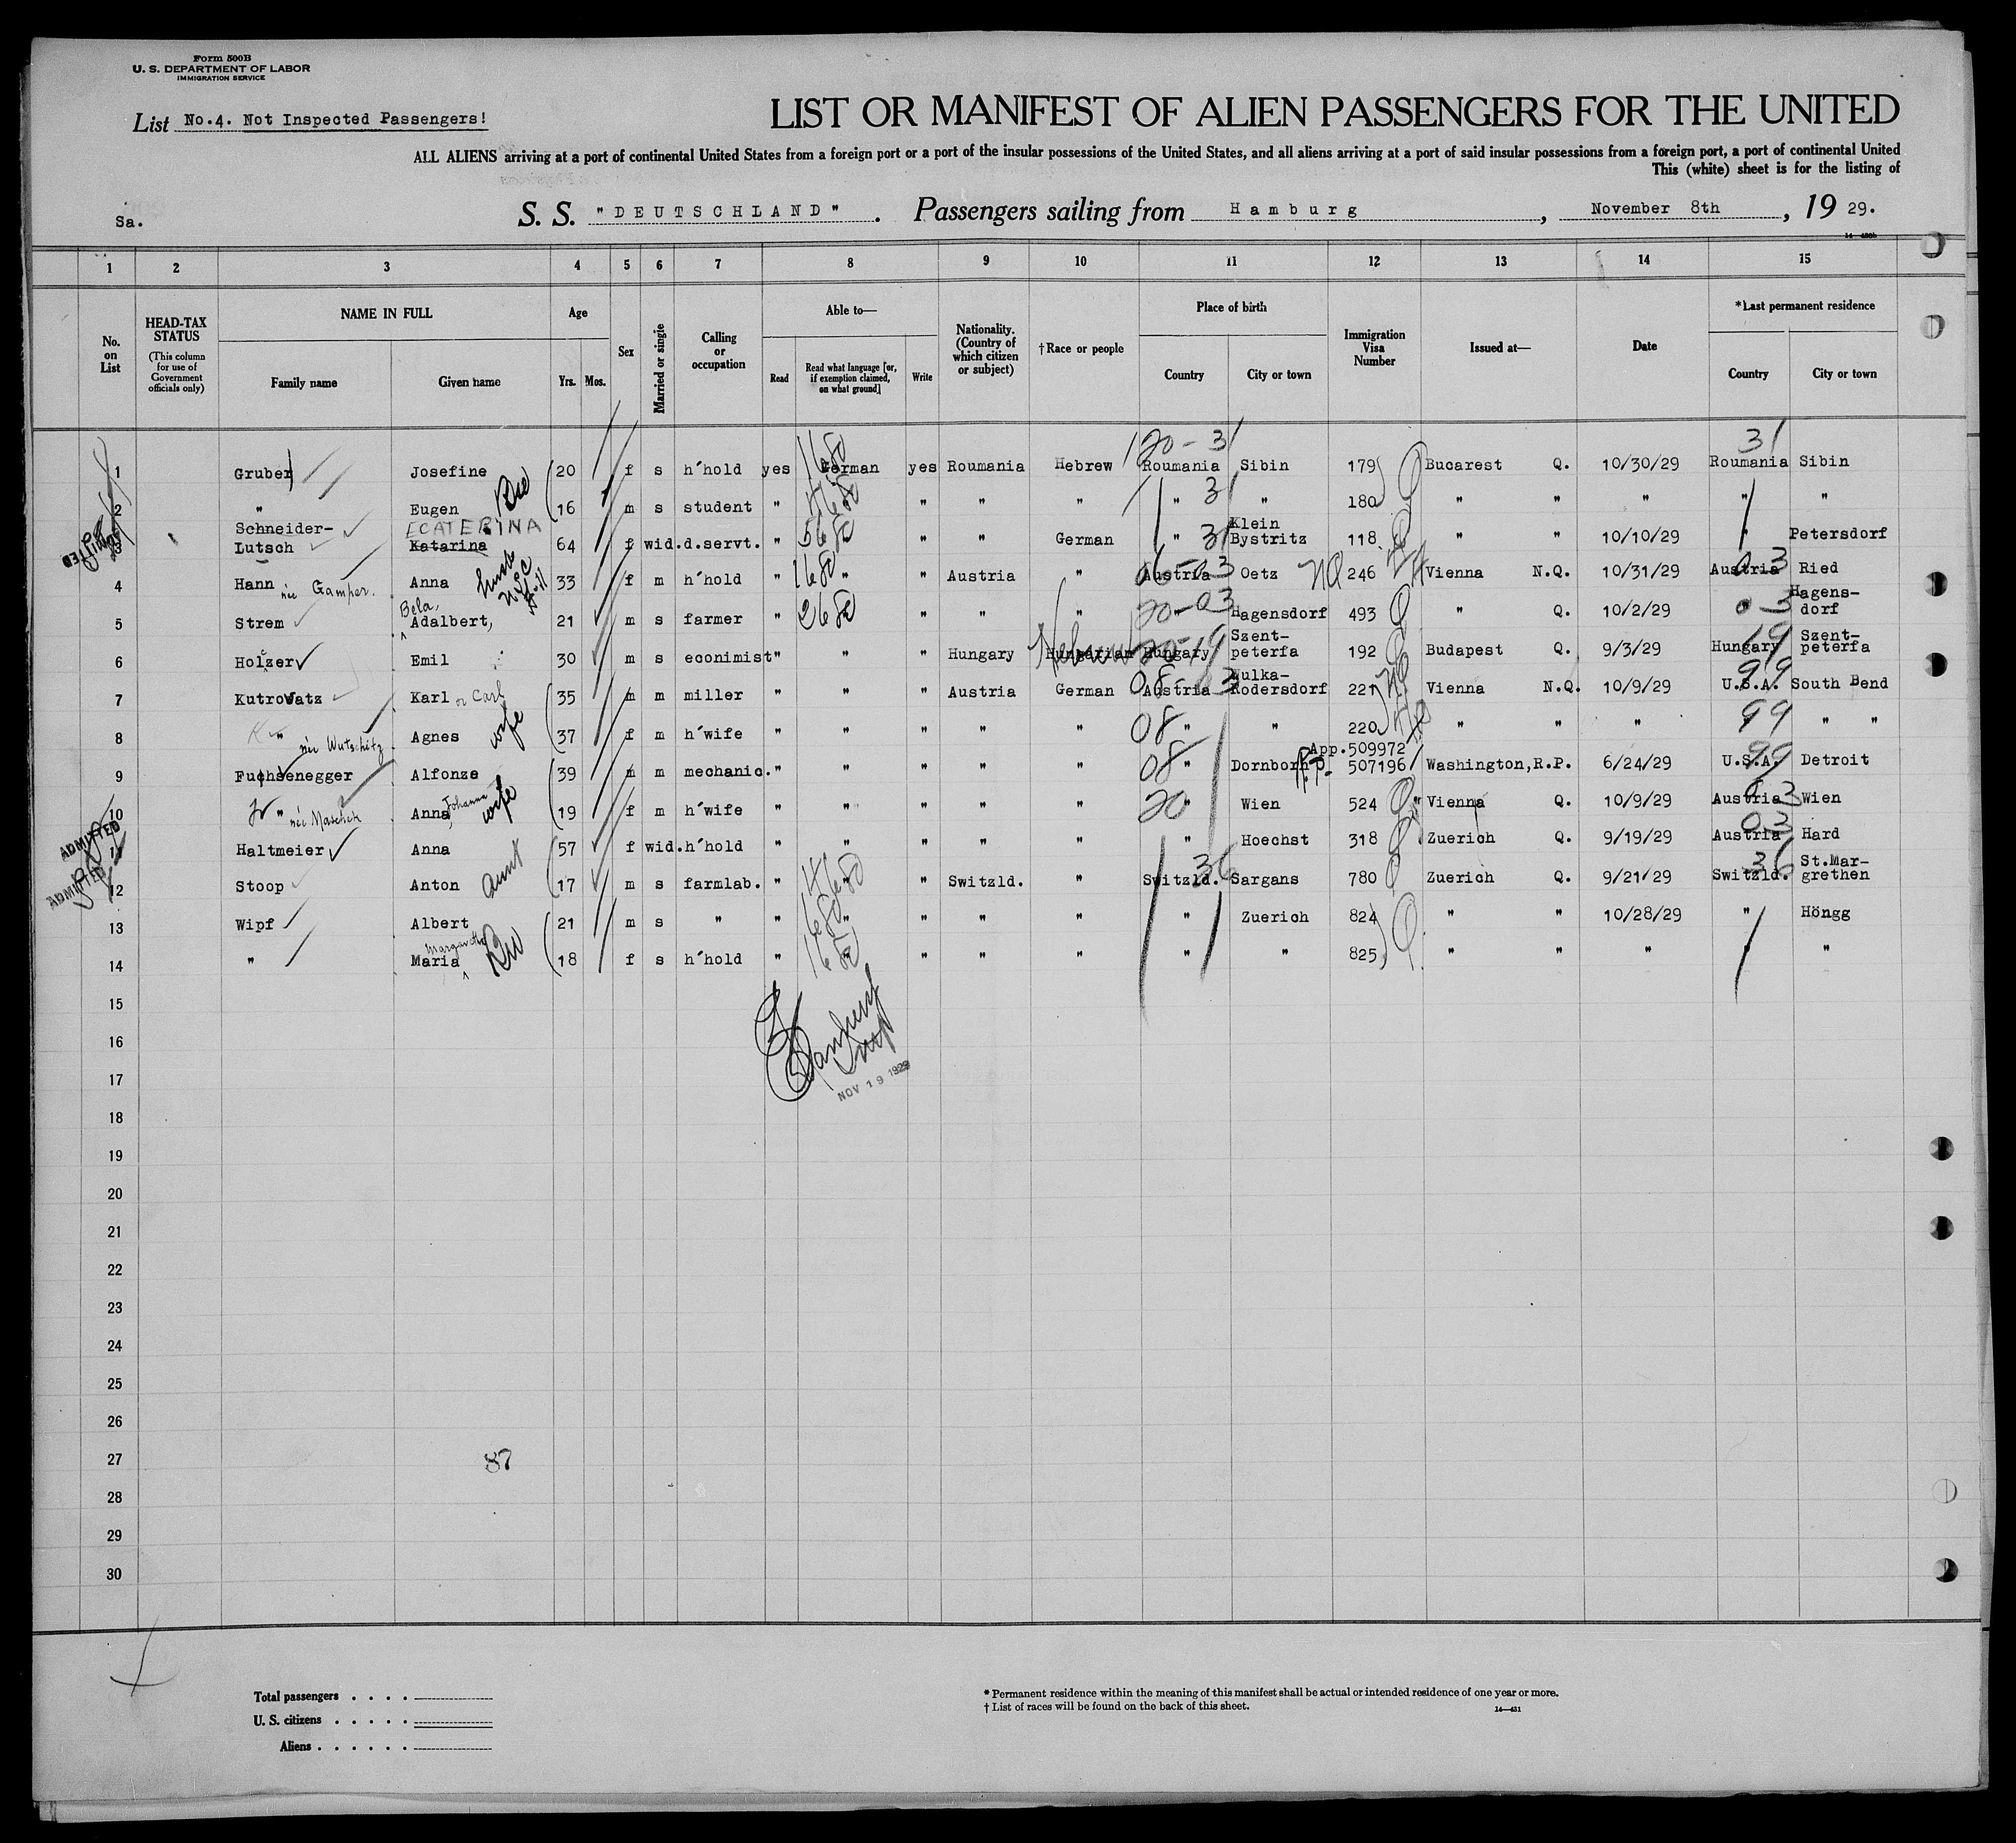 Form 500B
U. S. DEPARTMENT OF LABOR
IMMIGRATION SERVICE
List No.4. Not Inspected Passengers!
LIST OR MANIFEST OF ALIEN PASSENGERS FOR THE UNITED
ALL ALIENS arriving at a port of continental United States from a foreign port or a port of the insular possessions of the United States, and all aliens arriving at a port of said insular possessions from a foreign port, a port of continental United
This (white) sheet is for the listing of
Sa. S. S. "DEUTSCHLAND". Passengers sailing from Hamburg, November 8th, 19 29.
1 2 3 4 5 6 7 8 9 10 11 12 13 14 15
No. on List
HEAD-TAX STATUS
(This column for use of Government officials only)
NAME IN FULL
Family name Given name
Age
Yrs. Mos.
Sex
Married or single
Calling or occupation
Able to—
Read
Read what language [or, if exemption claimed, on what ground]
Write
Nationality. (Country of which citizen or subject)
†Race or people
Place of birth
Country City or town
Immigration Visa Number
Issued at—
Date
*Last permanent residence
Country City or town
20 - 31 31
1 Gruber Josefine 20 f s h'hold yes German yes Roumania Hebrew Roumania Sibin 179 Bucarest Q. 10/30/29 Roumania Sibin
2 " Eugen 16 m s student " " " " " 31 " 180 " " " " "
Schneider- ECATERINA Klein
3 Lutsch Katarina 64 f wid. d.servt. " " " German " 31 Bystritz 118 " " 10/10/29 " Petersdorf
4 Hann née Gamper. Anna 33 f m h'hold " " " Austria " Austria Oetz NQ 246 Vienna N.Q. 10/31/29 Austria Ried
Bela, Hagens-
5 Strem Adalbert, 21 m s farmer " " " " " Hagensdorf 493 " Q. 10/2/29 " dorf
Hebrew Szent- Szent-
6 Holzer Emil 30 m s econimist " " " Hungary Hungarian Hungary peterfa 192 Budapest Q. 9/3/29 Hungary peterfa
Wulka-
7 Kutrowatz Karl or Carl 35 m m miller " " " Austria German Austria Rodersdorf 221 Vienna N.Q. 10/9/29 U.S.A. South Bend
8 " née Wutschitz Agnes wife 37 f m h'wife " " " " " 08 " " 220 " " " 99 " "
App.509972
9 Fuchsenegger Alfonze 39 m m mechanic. " " " " " 08 " Dornborn R.P. 507196 Washington,R.P. 6/24/29 U.S.A. Detroit
10 " née Maschek Anna Johanna wife 19 f m h'wife " " " " " 20 " Wien 524 Vienna Q. 10/9/29 Austria Wien
ADMITTED
11 Haltmeier Anna 57 f wid. h'hold " " " " " " Hoechst 318 Zuerich Q. 9/19/29 Austria Hard
aunt 36 36 St.Mar-
ADMITTED
12 Stoop Anton 17 m s farmlab. " " " Switzld. " Switzld. Sargans 780 Zuerich Q. 9/21/29 Switzld. grethen
13 Wipf Albert 21 m s " " " " " " " Zuerich 824 " " 10/28/29 " Höngg
Margaretha
14 " Maria 18 f s h'hold " " " " " " " 825 " " " " "
15
16
17
NOV 19 1929
18
19
20
21
22
23
24
25
26
27 87
28
29
30
Total passengers . . . .
U. S. citizens . . . . .
Aliens . . . . . .
* Permanent residence within the meaning of this manifest shall be actual or intended residence of one year or more.
† List of races will be found on the back of this sheet.
14—431